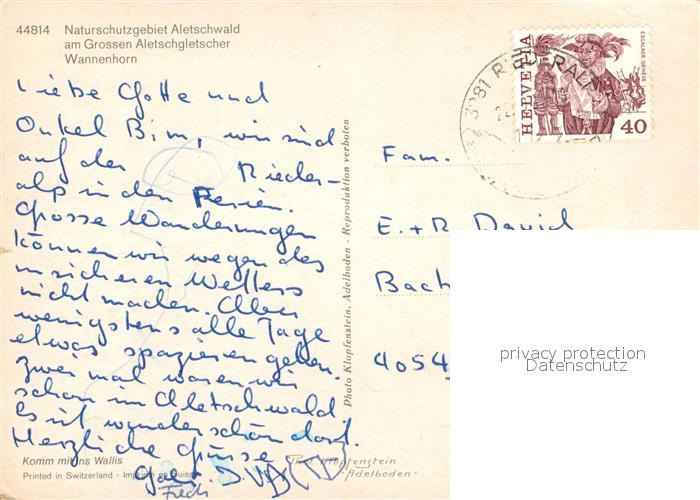 44814 Naturschutzgebiet Aletschwald
am Grossen Aletschgletscher
Wannenhorn
Liebe Gotte und
Onkel Bim, wir sind
auf der Rieder-
alp in den Ferien.
Grosse Wanderungen
können wir wegen des
unsicheren Wetters
nicht machen. Aber
wenigstens alle Tage
etwas spazieren gehen.
zwei mal waren wir
schon im Aletschwald
Es ist wunderschön dort.
Herzliche Grüsse
Komm mit ins Wallis
Printed in Switzerland - Imprimé en Suisse
Photo Klopfenstein, Adelboden - Reproduktion verboten
Phot. Klopfenstein
Adelboden
3981 RIEDERALP
HELVETIA
ESCALADE GENÈVE
40
Fam.
E. + R. David
Bach
4054
privacy protection
Datenschutz